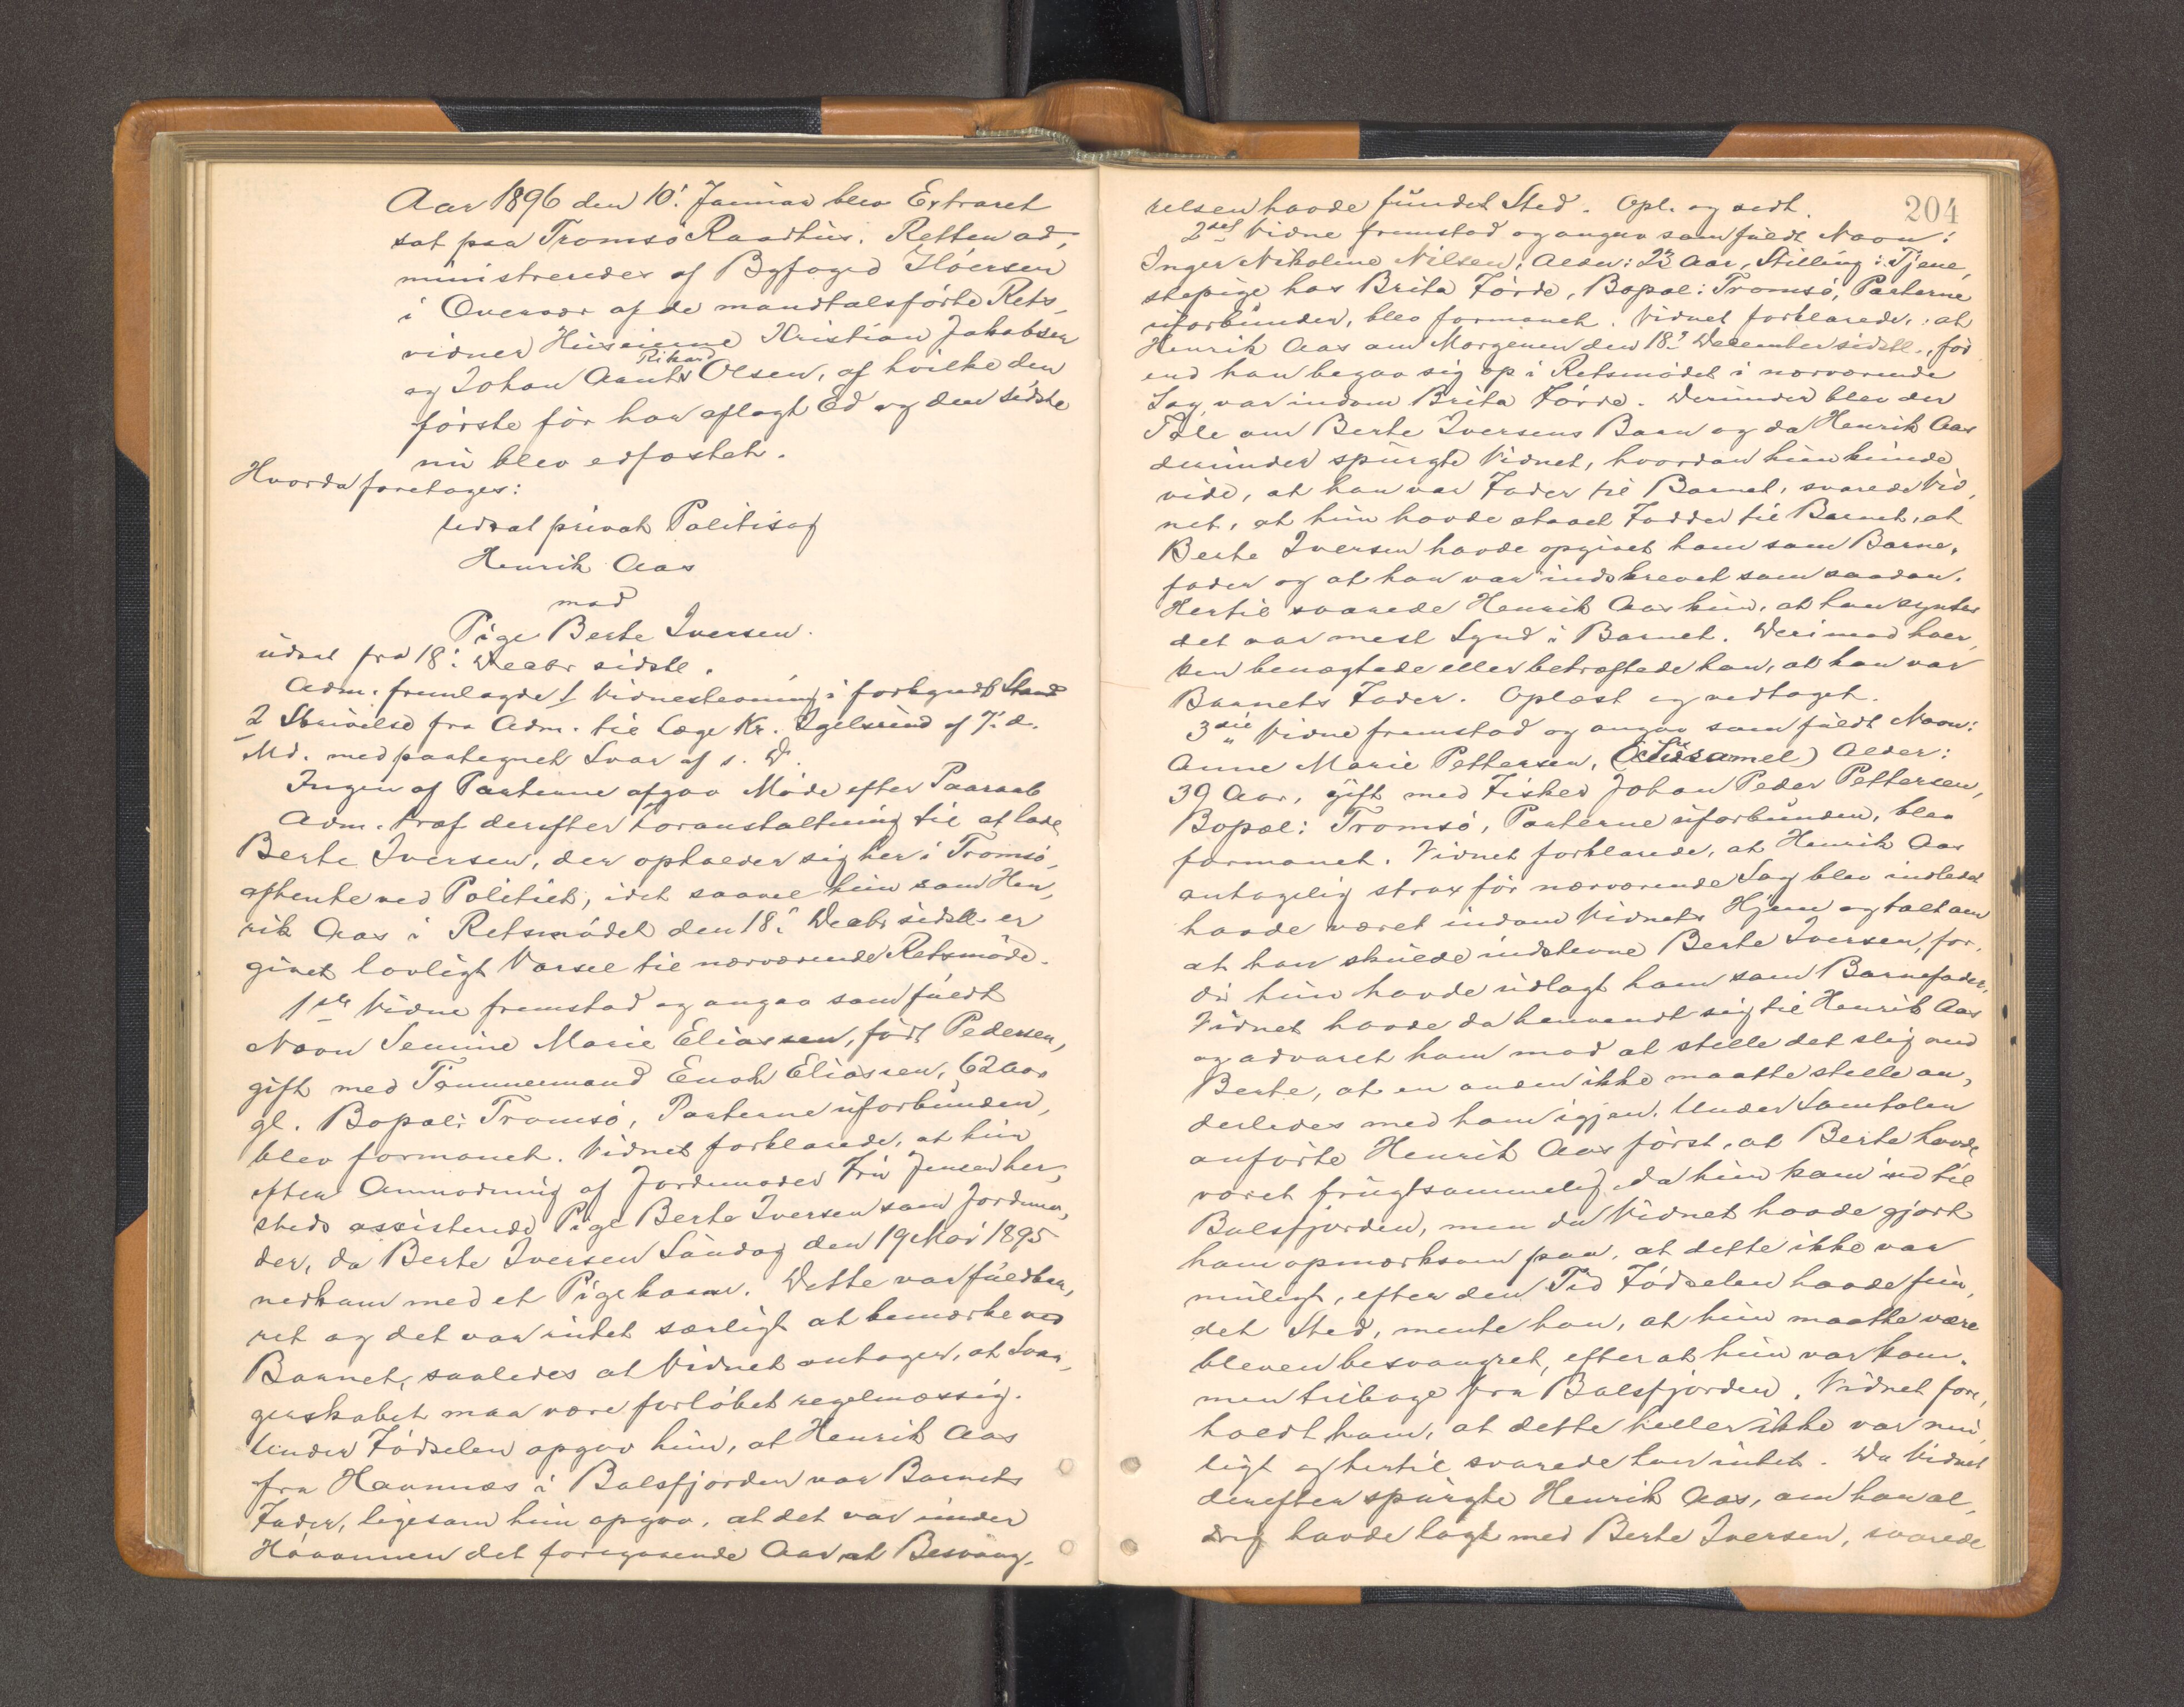 Aar 1896 den 10. Januar blev Extraret
sat paa Tromsø Raadhus. Retten ad-
ministreredes af Byfoged
i Overvær af de mandtalsførte Rets-
vidner Huseierne Kristian Jakobsen
Rikard
og Johan Olsen, af hvilke den
første før har aflagt Ed og den sidste
nu blev edfæstet.
Hvorda foretages:
Udsat privat Politisag
Henrik Aas
mod
Pige Berte Iversen.
udsat fra 18. Decbr sidstl.
Adm. fremlagde 1 Vidnestevning i forkyndt Stand
2 Skrivelse fra Adm. til Læge Kr. Igelsrud af 7. d.
Md. med paategnet Svar af s. D.
Ingen af Parterne afgav Møde efter Paaraab
Adm. traf derefter Foranstaltning til at lade
Berte Iversen, der opholder sig her i Tromsø,
afhente ved Politiet, idet saavel hun som Hen-
rik Aas i Retsmødet den 18. Decbr sidstl. er
givet lovligt Varsel til nærværende Retsmøde.
1ste Vidne fremstod og angav som fuldt
Navn Semine Marie Eliassen, født Pedersen,
gift med Tømmermand Enok Eliassen, 62 Aar
gl. Bopæl: Tromsø, Parterne uforbunden,
blev formanet. Vidnet forklarede, at hun
efter Anmodning af Jordemoder Fru Jensen her-
steds assisterede Pige Berte Iversen som Jordemo-
der, da Berte Iversen Søndag den 19 Mai 1895
nedkom med et Pigebarn. Dette var fuldbaa-
ret og det var intet særligt at bemærke ved
Barnet, saaledes at Vidnet antager, at Svan-
gerskabet maa være forløbet regelmæssig.
Under Fødselen opgav hun, at Henrik Aas
fra Havnnæs i Balsfjorden var Barnets
Fader, ligesom hun opgav, at det var under
Haaonnen det foregaaende Aar at Besvang-
204
relsen havde fundet Sted. Opl. og vedt.
2det Vidne fremstod og angav som fuldt Navn:
Inger Nikoline Nilsen, Alder: 23 Aar, Stilling: Tjene-
stepige hos Brita Førde, Bopæl: Tromsø, Parterne
uforbunden, blev formanet. Vidnet forklarede, at
Henrik Aas om Morgenen den 18. December sidstl., før
end han begav sig op i Retsmødet i nærværende
Sag, var indom Brita Førde. Derunder blev der
Tale om Berte Iversens Barn og da Henrik Aas
derunder spurgte Vidnet, hvordan hun kunde
vide, at han var Fader til Barnet, svarede Vid-
net, at hun havde staaet Fadder til Barnet, at
Berte Iversen havde opgivet ham som Barne-
fader og at han var indskrevet som saadan.
Hertil svarede Henrik Aas kun, at han syntes
det var mest Synd i Barnet. Derimod hver-
ken benægtede eller bekræftede han, at han var
Barnets Fader. Oplæst og vedtaget.
3die Vidne fremstod og angav som fuldt Navn:
Anne Marie Pettersen, Alder:
39 Aar, gift med Fisker Johan Peder Pettersen,
Bopæl: Tromsø, Parterne uforbunden, blev
formanet. Vidnet forklarede, at Henrik Aas
antagelig strax før nærværende Sag blev indledet
havde været indom Vidnets Hjem og talt om
at han skulde indstevne Berte Iversen, for-
di hun havde udlagt ham som Barnefader,
Vidnet havde da henvendt sig til Henrik Aas
og advaret ham mod at stelle det slig med
Berte, at en anden ikke maatte stelle an-
derledes med ham igjen. Under Samtalen
anførte Henrik Aas først, at Berte havde
været frugtsommelig da hun kom ind til
Balsfjorden, men da Vidnet havde gjort
ham opmærksom paa, at dette ikke var
muligt, efter den Tid Fødselen havde fun-
det Sted, mente han, at hun maatte være
bleven besvangret, efter at hun var kom-
men tilbage fra Balsfjorden. Vidnet fore-
holdt ham, at dette heller ikke var mu-
ligt og hertil svarede han intet. Da Vidnet
derefter spurgte Henrik Aas, om han al-
drig havde lagt med Berte Iversen, svarede